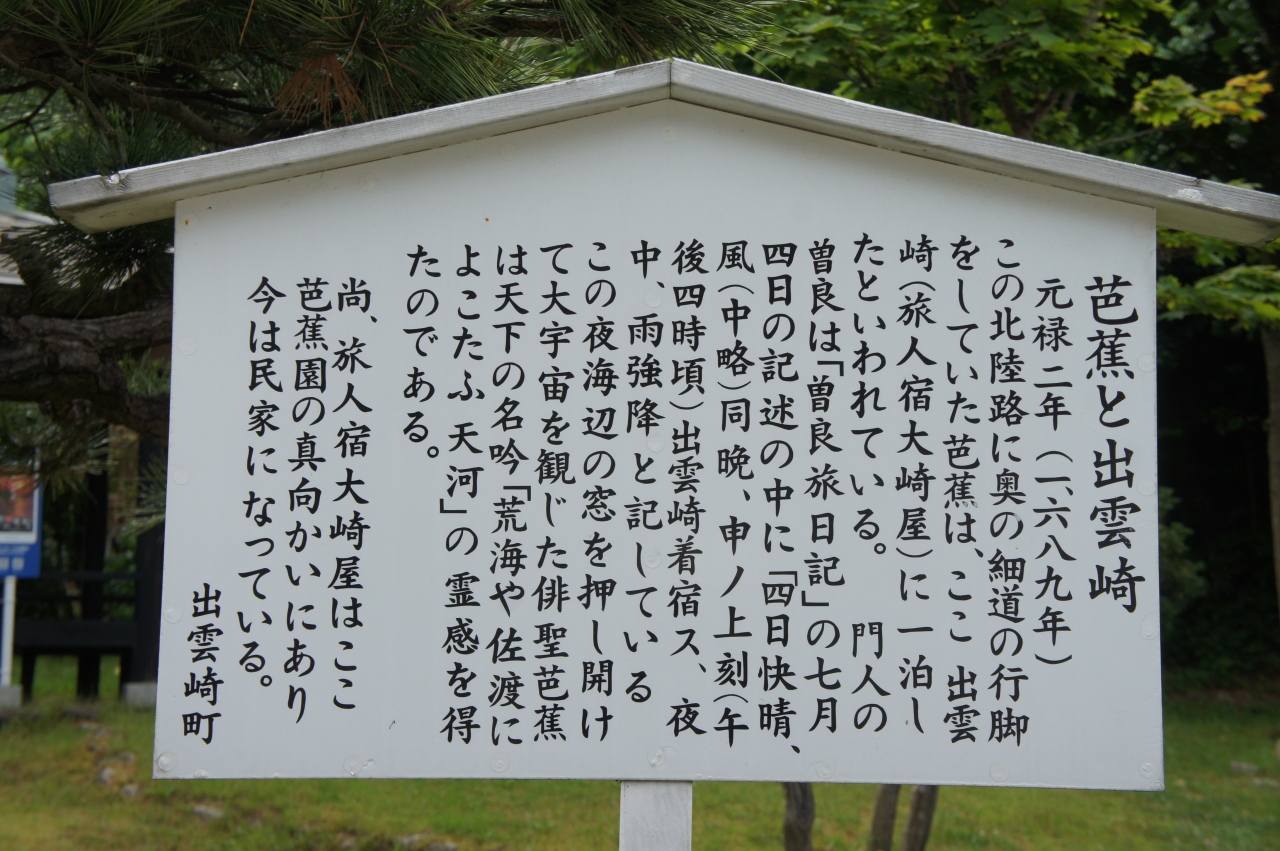 芭蕉と出雲崎
元禄二年(一六八九年)
この北陸路に奥の細道の行脚
をしていた芭蕉は、ここ出雲
崎(旅人宿大崎屋)に一泊し
たといわれている。 門人の
曽良は「曽良旅日記」の七月
四日の記述の中に「四日快晴、
風(中略)同晩、申ノ上刻(午
後四時頃)出雲崎着宿ス、夜
中、雨強降と記している
この夜海辺の窓を押し開け
て大宇宙を観じた俳聖芭蕉
は天下の名吟「荒海や佐渡に
よこたふ天河」の霊感を得
たのである。
尚、旅人宿大崎屋はここ
芭蕉園の真向かいにあり
今は民家になっている。
出雲崎町